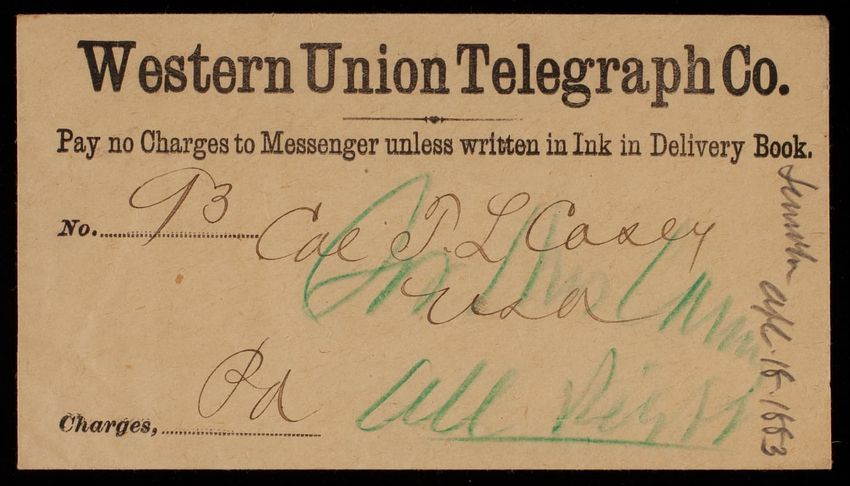 Western Union Telegraph Co.
Pay no Charges to Messenger unless written in Ink in Delivery Book.
No. 93
Col T. L Casey
USA
Charges, Pd
All Right
Apl. 18-1883